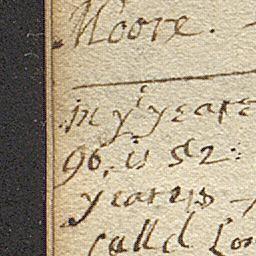 Moore.
in yͤ yeare
96, is 52:
years -
calld Lon